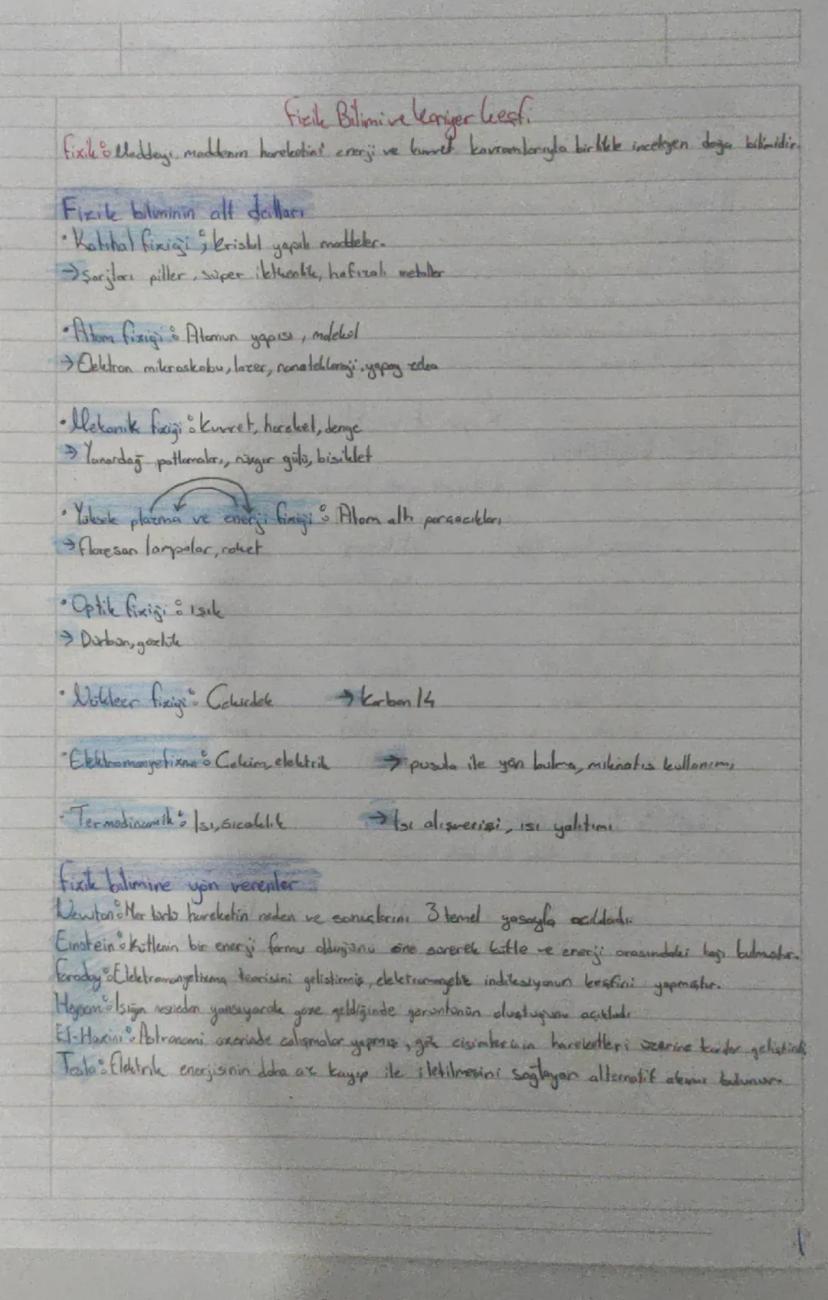 Fizik Bilimi ve Kariyer Keşfi
Fizik: Maddeyi, maddenin hareketini enerji ve kuvvet kavramlarıyla birlikte inceleyen doğa bilimidir.
Fizik biliminin alt dalları
• Katıhal fiziği: kristal yapılı maddeler.
→ Şarjları piller, süper iletkenlik, hafızalı metaller
• Atom fiziği: Atomun yapısı, molekül
→ Elektron mikroskobu, lazer, nanoteknoloji, yapay
• Mekanik fiziği: Kuvvet, hareket, denge
→ Yanardağ patlamaları, rüzgar gülü, bisiklet
• Yüksek plazma ve enerji fiziği: Atom altı parçacıkları
→ Floresan lampalar, roket
• Optik fiziği: ışık
→ Dürbün, gözlük
• Nükleer fiziği: Çekirdek → Karbon 14
• Elektromanyetizma: Çekim, elektrik → pusula ile yön bulma, mıknatıs kullanımı
• Termodinamik: Isı, sıcaklık → Isı alışverişi, ısı yalıtımı
Fizik bilimine yön verenler
Newton: Her türlü hareketin neden ve sonuçlarını 3 temel yasayla açıkladı.
Einstein: Kütlenin bir enerji formu olduğunu öne sürerek kütle ve enerji arasındaki bağı bulmuştur.
Faraday: Elektromanyetizma teorisini geliştirmiş, elektromanyetik indüksiyonun keşfini yapmıştır.
Heysem: Işığın nesneden yansıyarak göze geldiğinde görüntünün oluştuğunu açıkladı
El-Hazini: Astronomi üzerinde çalışmalar yapmış, gök cisimlerinin hareketleri üzerine geliştirdi
Tesla: Elektrik enerjisinin daha az kayıp ile iletilmesini sağlayan alternatif akımı
1